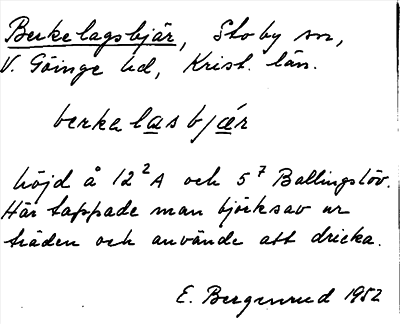 Berkelagsbjär, Stoby sn,
V. Göinge hd, Krist. län.
berkalasbjär
höjd å 12² A och 5⁷ Ballingslöv.
Här tappade man björksav ur
träden och använde att dricka.
E. Bergenrud 1952